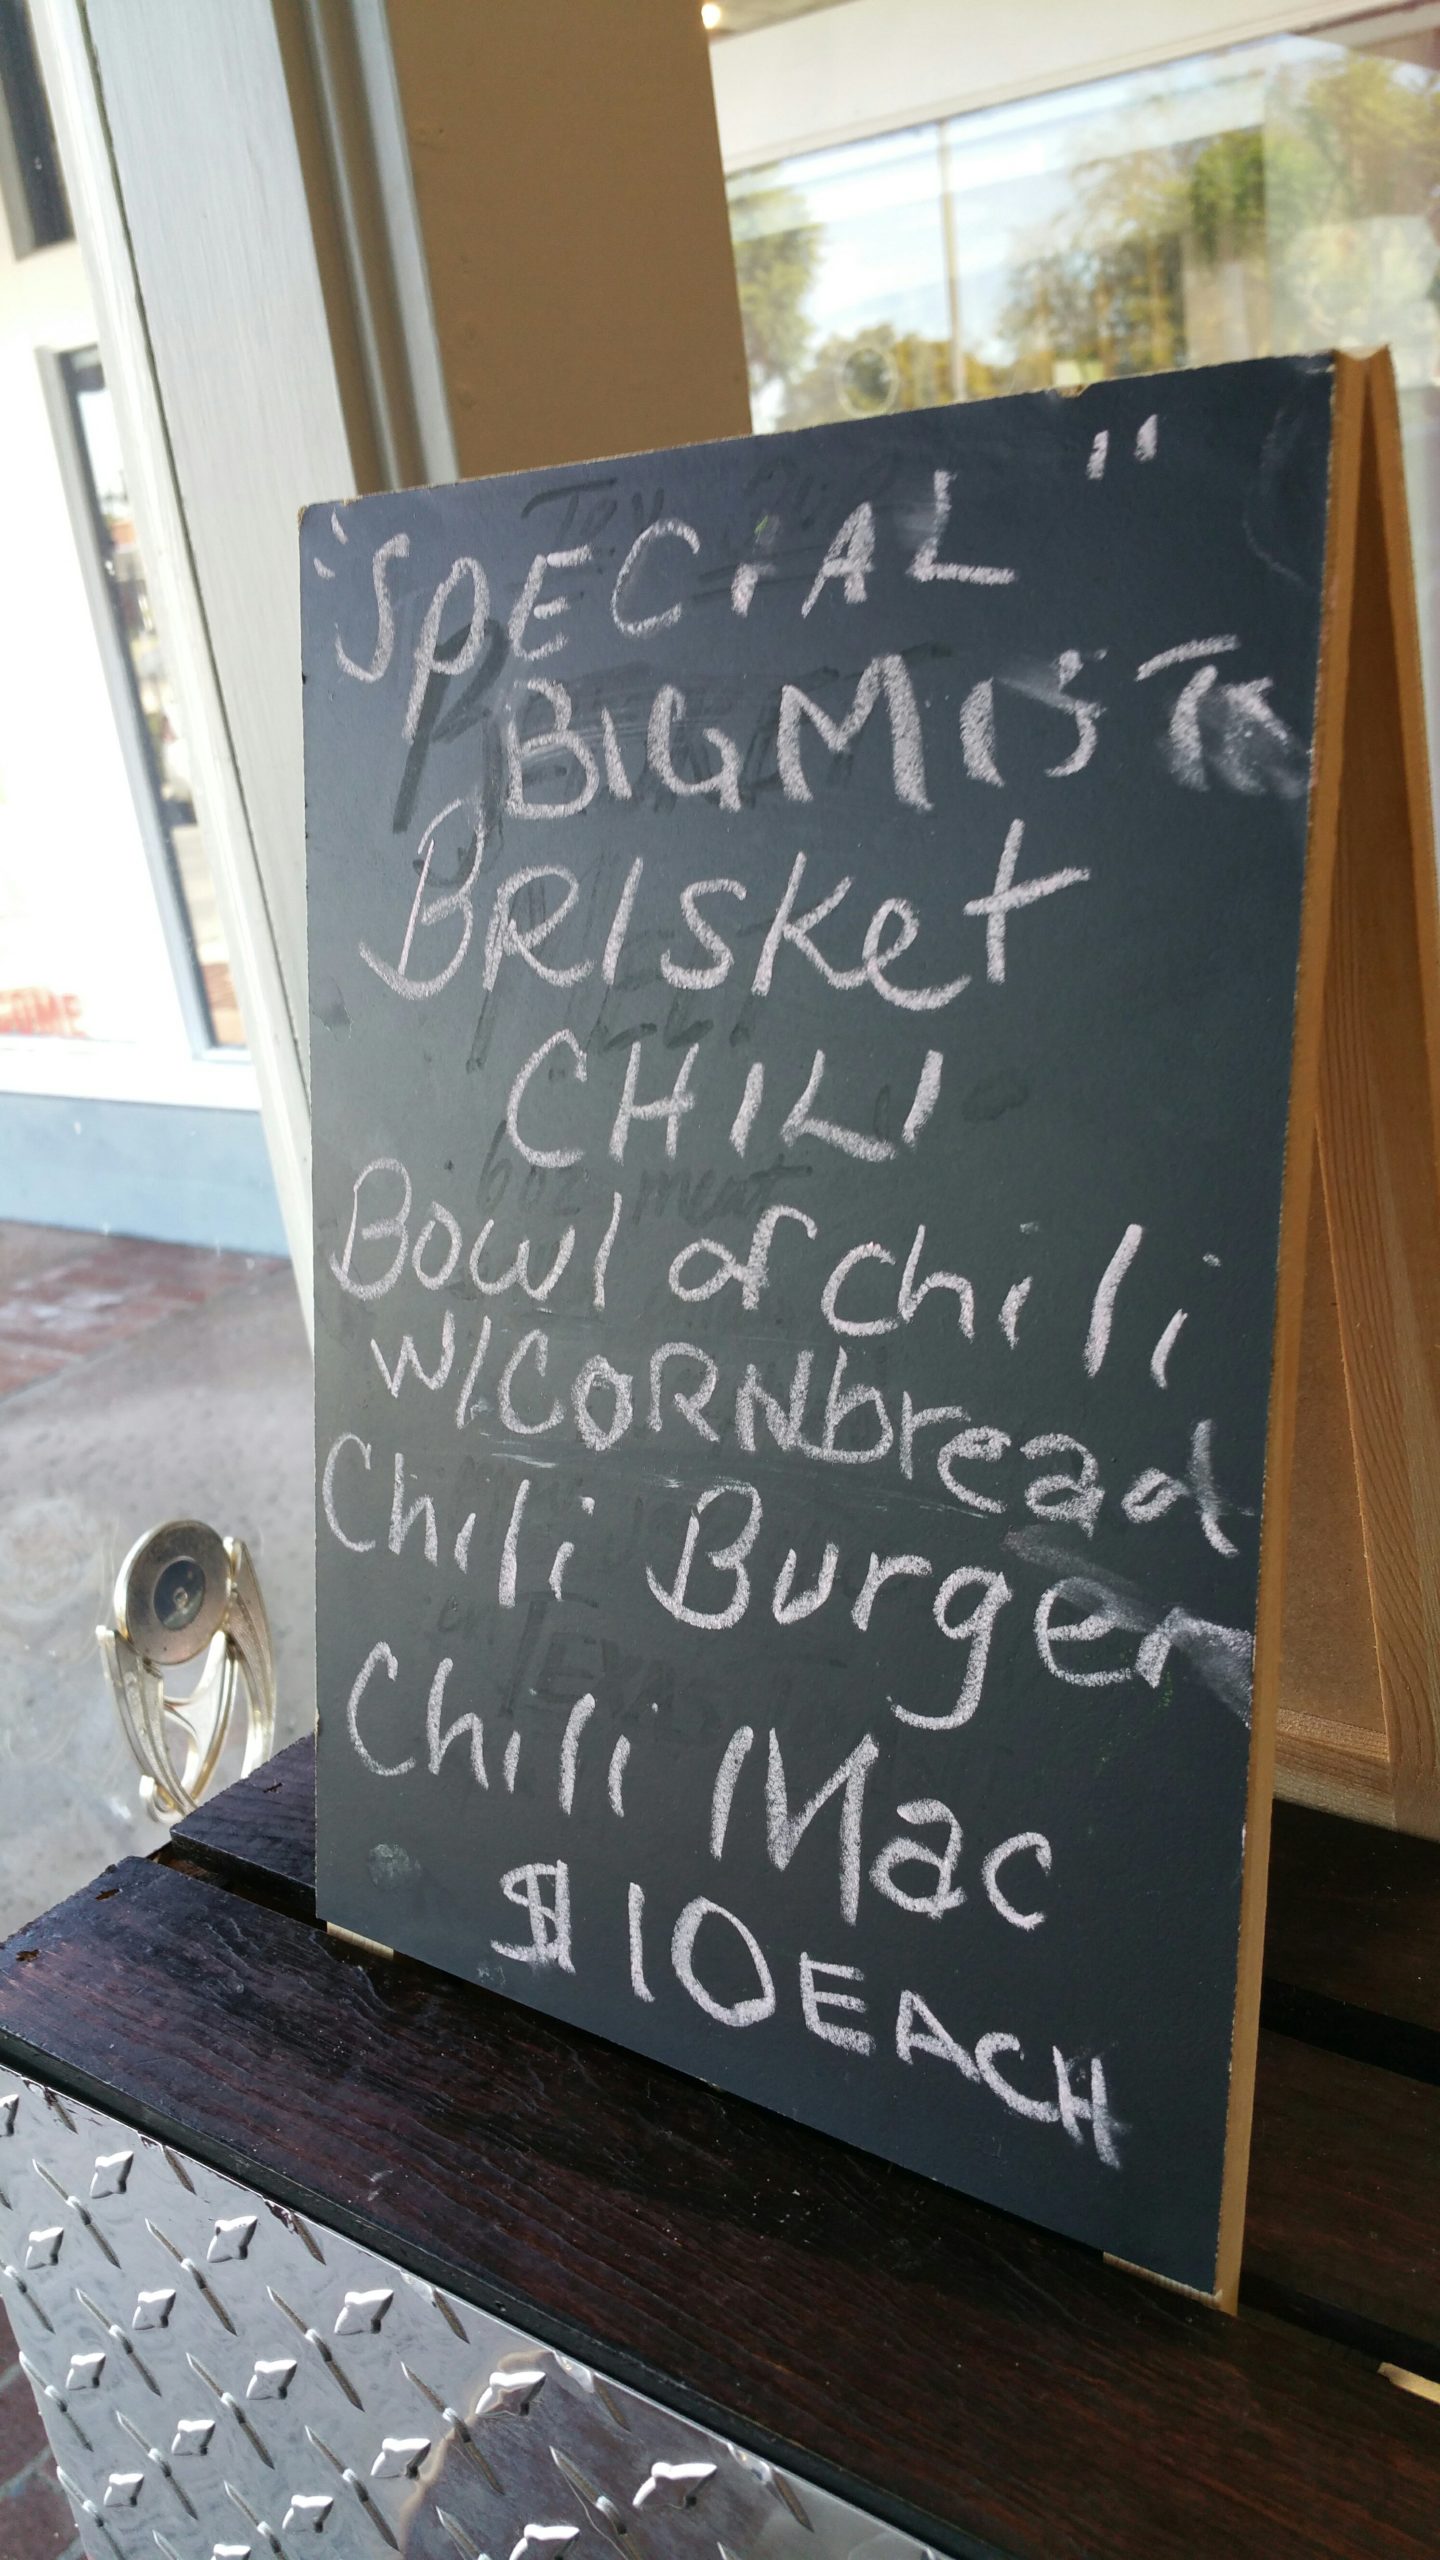 "SPECIAL"
BIG MIS
BRISKet
CHILI
Bowl of chili
W/CORNbread
Chili Burger
Chili Mac
$10 EACH
6oz meat
TEXAS